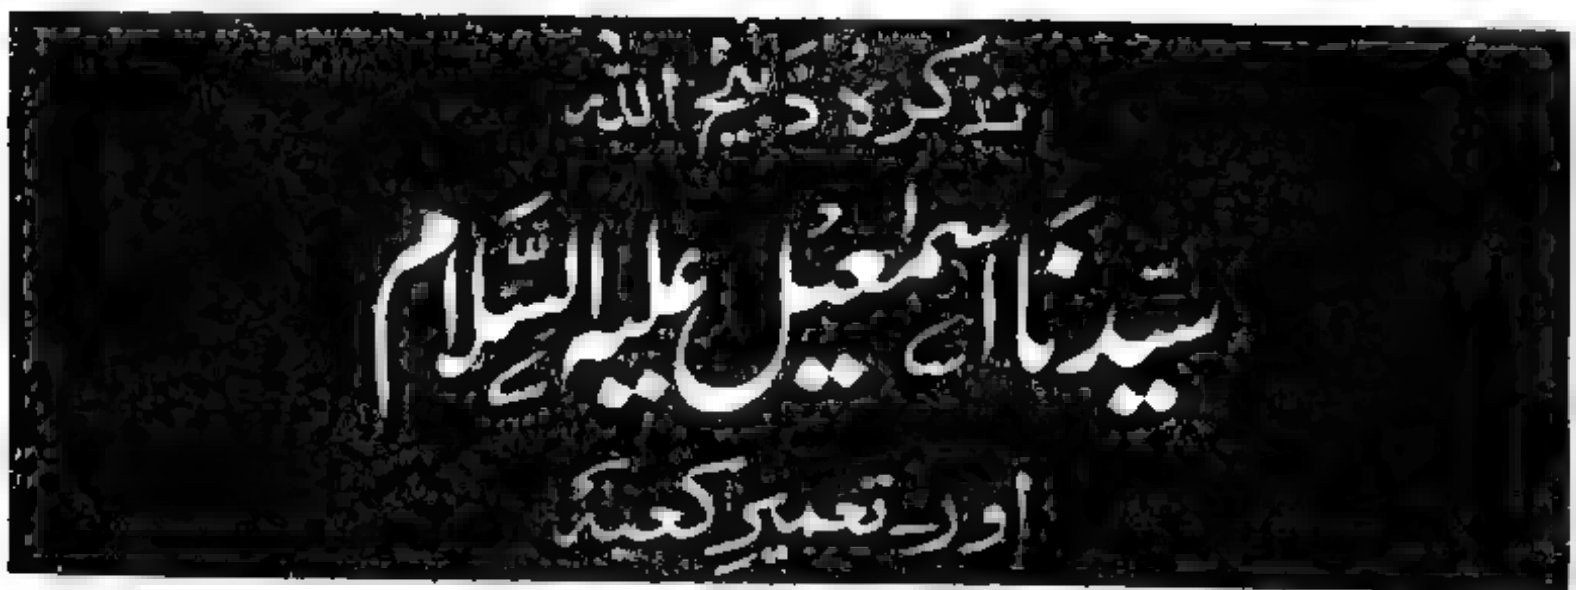 تذکرہ ذبیح اللہ
سیّدنَا اسمٰعیل علیہ السَّلام
اور تعمیر کعبہ